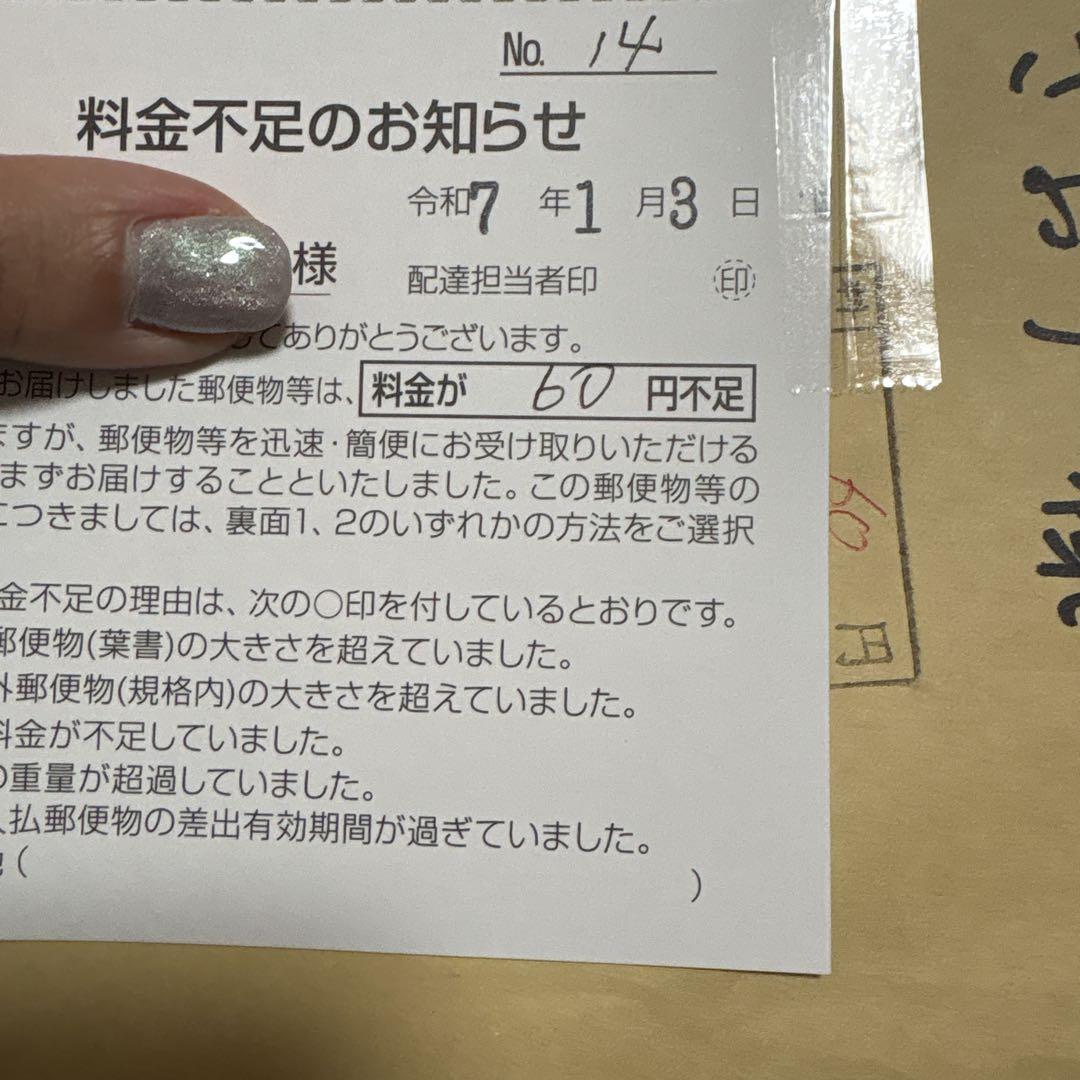 No. 14
料金不足のお知らせ
令和7年1月3日
様
配達担当者印 印
てありがとうございます。
お届けしました郵便物等は、料金が 60 円不足
ますが、郵便物等を迅速・簡便にお受け取りいただける
まずお届けすることといたしました。この郵便物等の
につきましては、裏面1、2のいずれかの方法をご選択
金不足の理由は、次の○印を付しているとおりです。
郵便物(葉書)の大きさを超えていました。
外郵便物(規格内)の大きさを超えていました。
料金が不足していました。
の重量が超過していました。
払郵便物の差出有効期間が過ぎていました。
( )
60
円